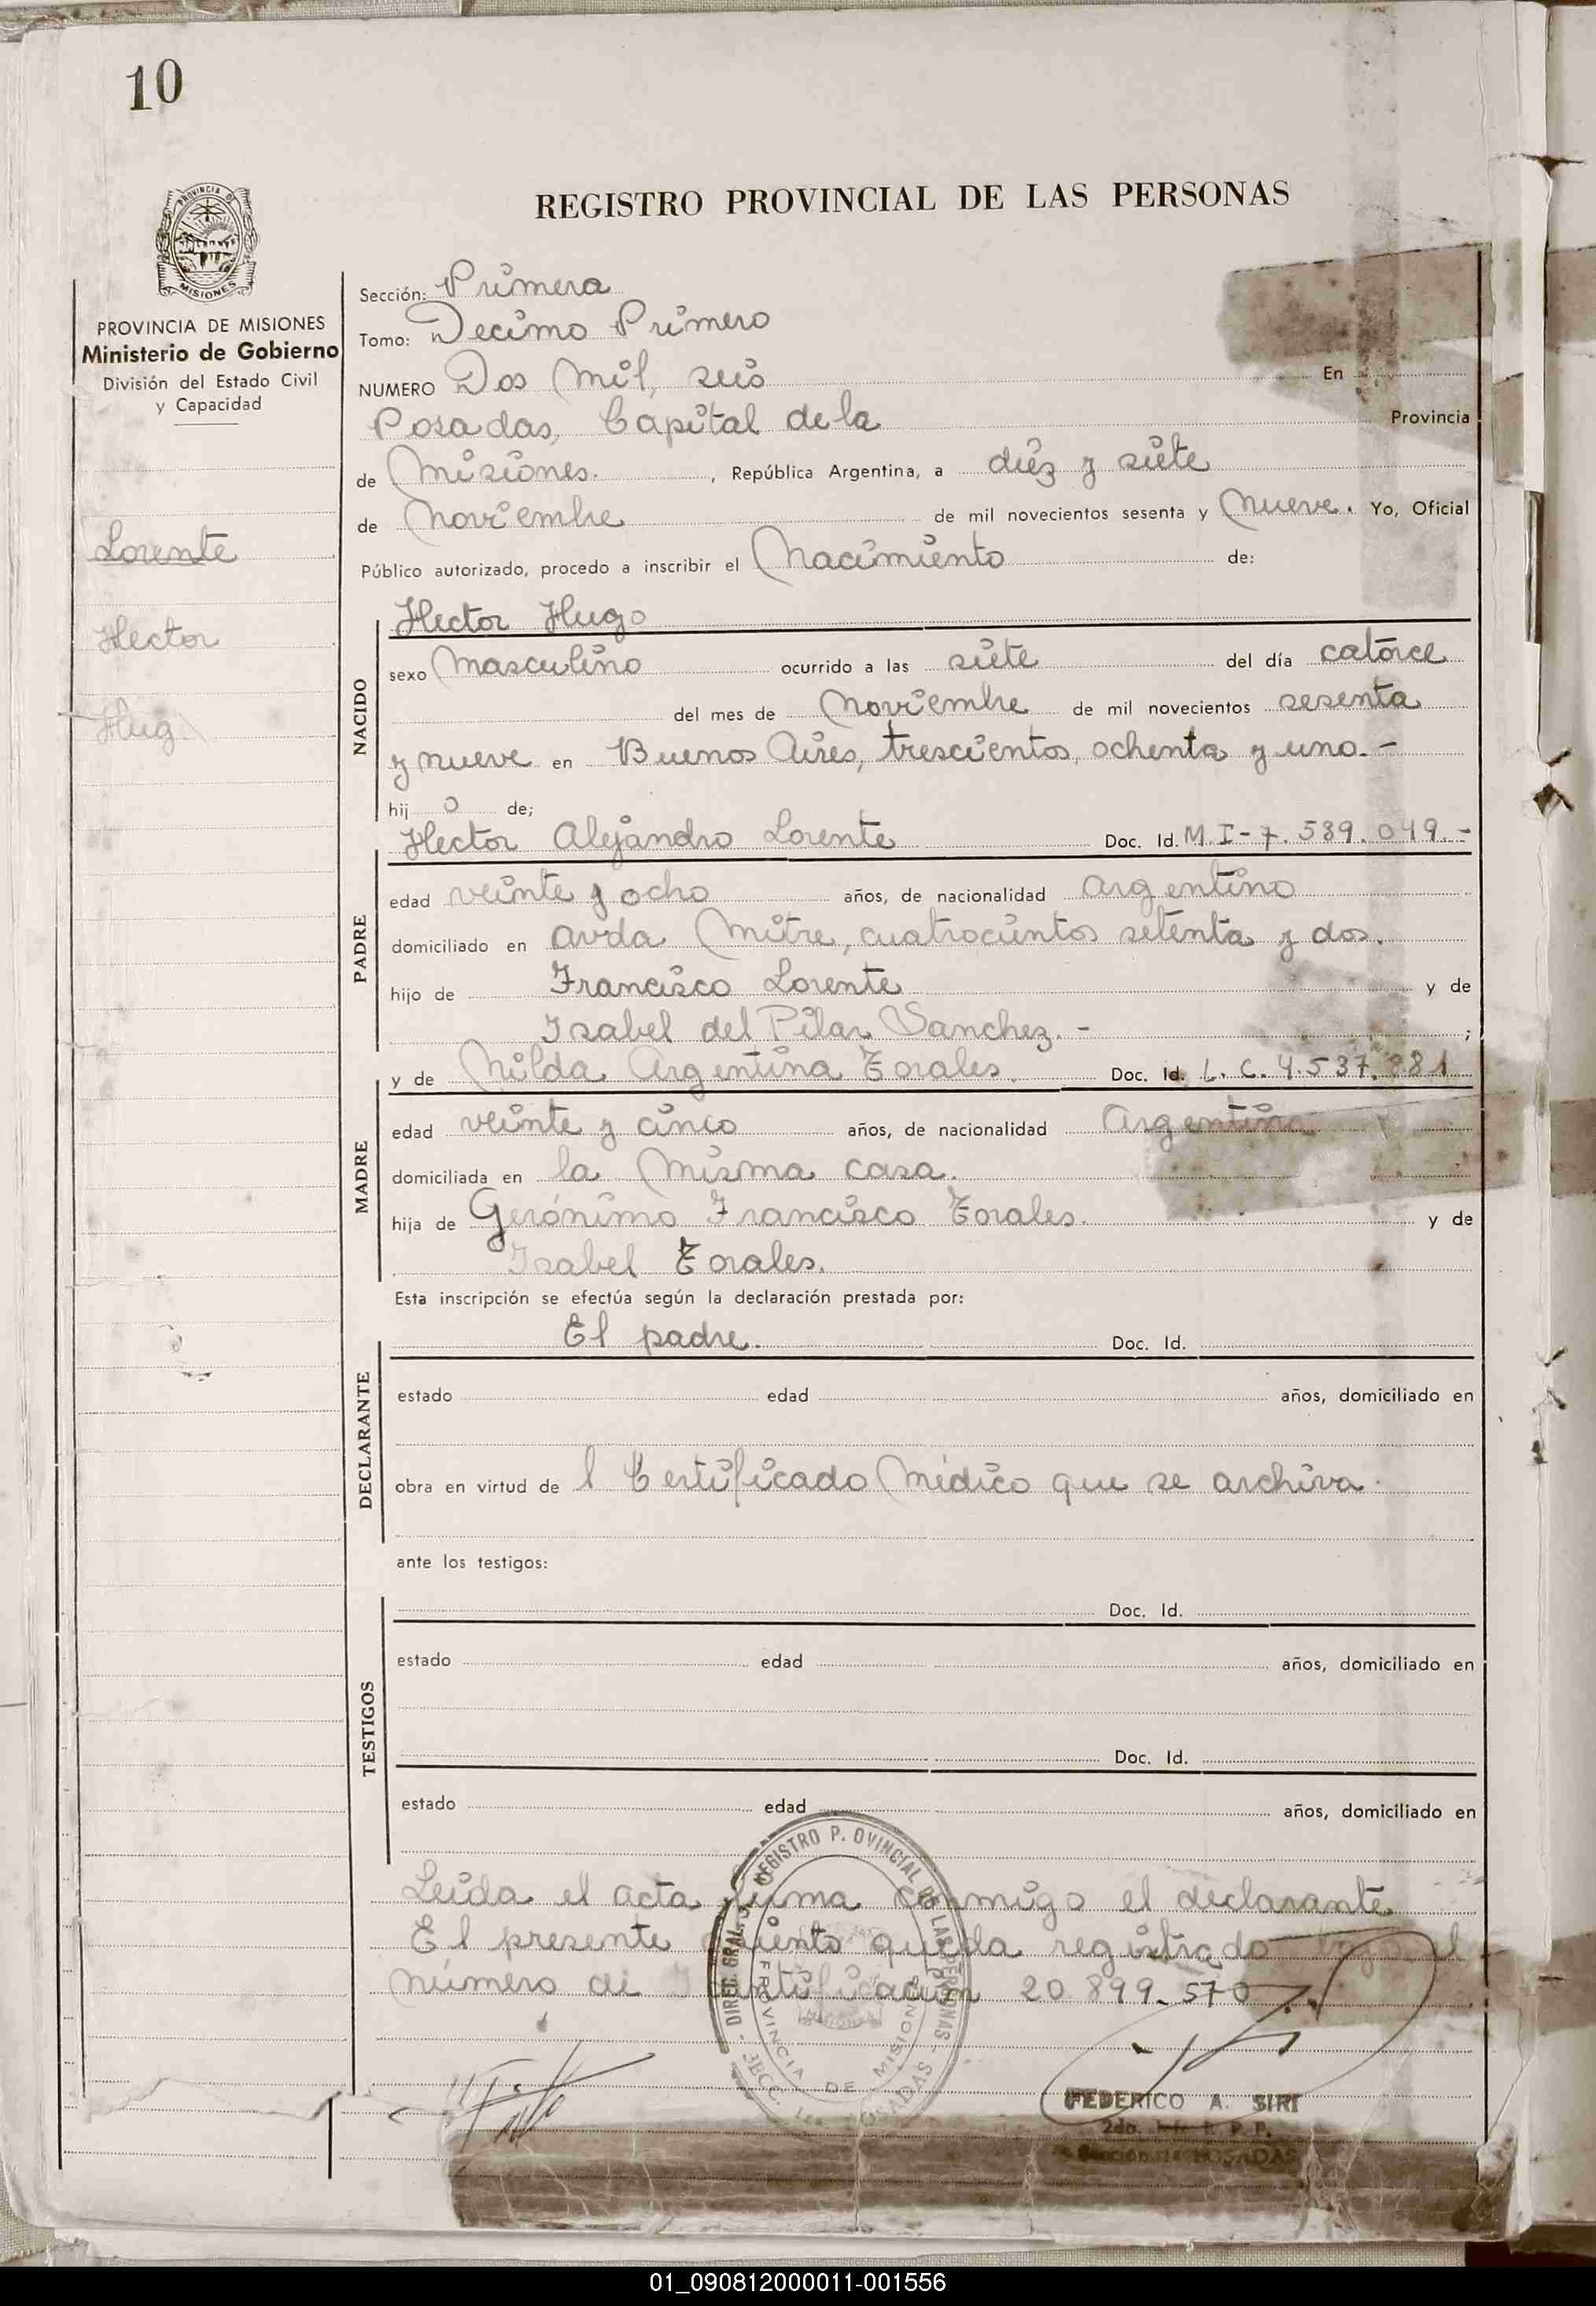 10
PROVINCIA DE
MISIONES
REGISTRO PROVINCIAL DE LAS PERSONAS
PROVINCIA DE MISIONES
Ministerio de Gobierno
División del Estado Civil
y Capacidad
Lorente
Hector
Hug
Sección: Primera
Tomo: Decimo Primero
NUMERO Dos Mil, seis En
Posadas, Capital de la Provincia
de Misiones. , República Argentina, a diéz y siete
de Noviembre de mil novecientos sesenta y Nueve. Yo, Oficial
Público autorizado, procedo a inscribir el Nacimiento de:
Hector Hugo
NACIDO
sexo Masculino ocurrido a las siete del día catorce
del mes de Noviembre de mil novecientos sesenta
y nueve en Buenos Aires, trescientos, ochenta y uno.-
hij o de;
Hector Alejandro Lorente Doc. Id. M.I-7.589.049.-
PADRE
edad veinte y ocho años, de nacionalidad argentino
domiciliado en avda Mitre, cuatrocientos setenta y dos.
hijo de Francisco Lorente y de
Isabel del Pilar Sanchez.- ;
y de Nilda Argentina Torales. Doc. Id. L.C. 4.537.881
MADRE
edad veinte y cinco años, de nacionalidad argentina
domiciliada en la misma casa.
hija de Gerónimo Francisco Torales. y de
Isabel Torales.
Esta inscripción se efectúa según la declaración prestada por:
El padre. Doc. Id.
DECLARANTE
estado edad años, domiciliado en
obra en virtud de l Certificado Médico que se archiva.
ante los testigos:
Doc. Id.
TESTIGOS
estado edad años, domiciliado en
Doc. Id.
estado edad años, domiciliado en
Leida el acta firma conmigo el declarante
El presente queda registrado bajo el
número de Identificacion 20.899.570
DIREC. GRAL. REGISTRO P. OVINCIAL DE LAS PERSONAS
PROVINCIA DE MISIONES
SECC. 1ra. POSADAS
FEDERICO A. SIRI
2do. Jefe R. P. P.
Sección 1ª POSADAS
01_090812000011-001556